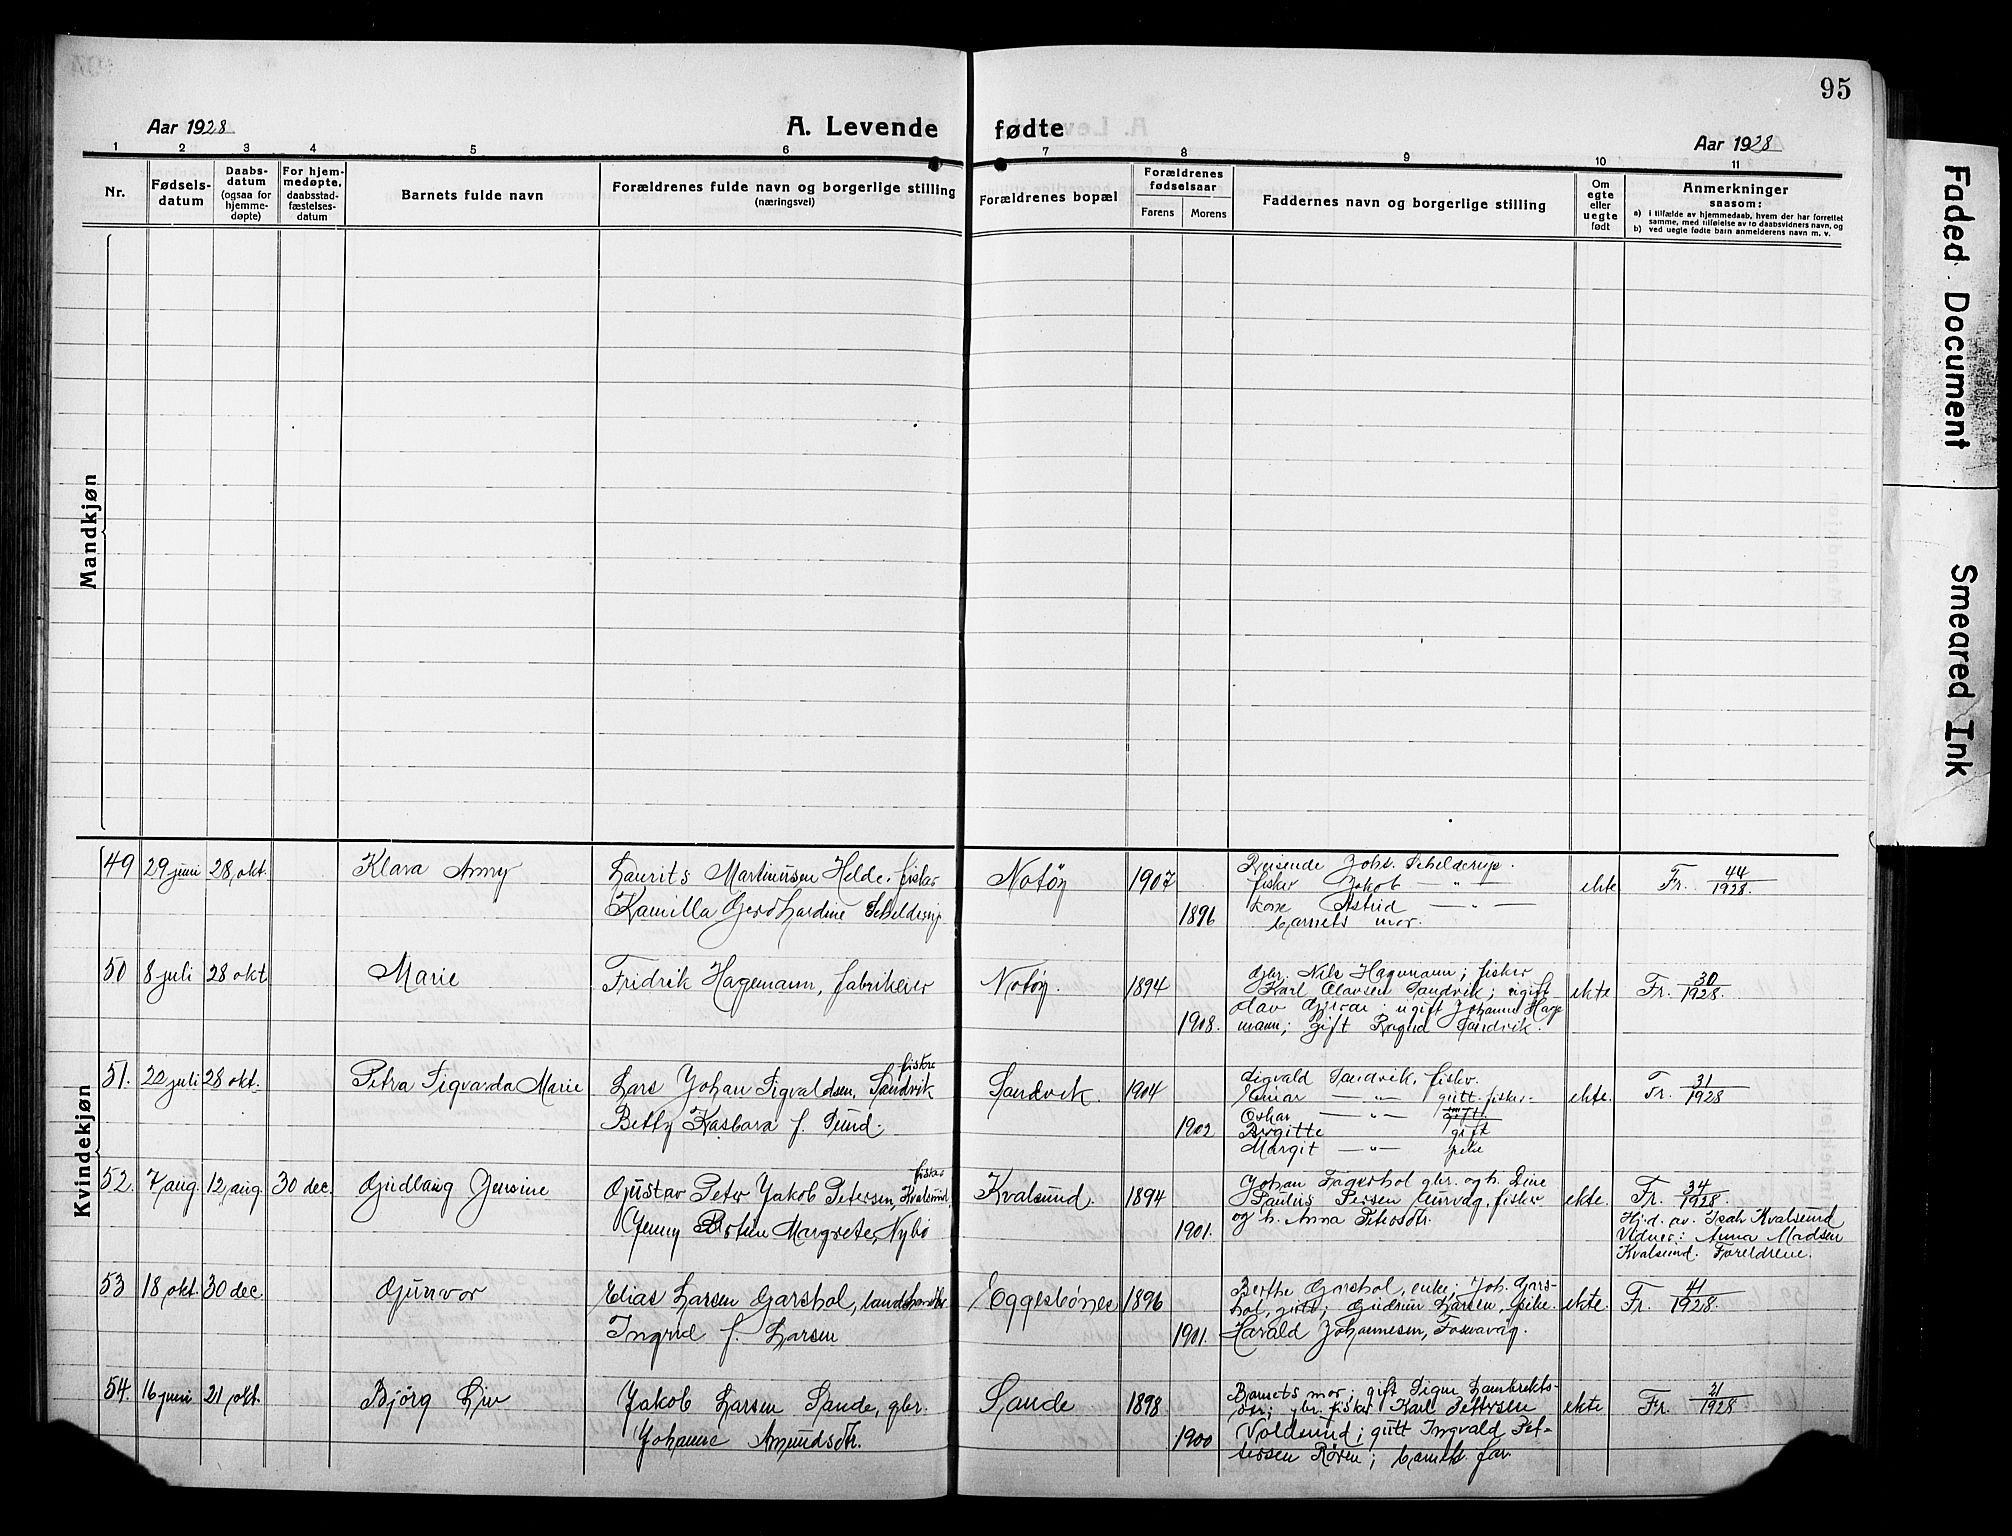 95
Aar 1928
A. Levende fødte
Aar 1928
1 2 3 4 5 6 7 8 9 10 11
Nr.
Fødsels-
datum
Daabs-
datum
(ogsaa for
hjemme-
døpte)
For hjem-
medøpte,
daabsstad-
fæstelses-
datum
Barnets fulde navn
Forældrenes fulde navn og borgerlige stilling
(næringsvei)
Forældrenes bopæl
Forældrenes
fødselsaar
Farens Morens
Faddernes navn og borgerlige stilling
Om
egte
eller
uegte
født
Anmerkninger
saasom:
a) i tilfælde av hjemmedaab, hvem der har forrettet
samme, med tilføielse av to daabsvidners navn, og
b) ved uegte fødte barn anmelderens navn m. v.
Mandkjøn
Kvindekjøn
49 29 juni 28. okt. Klara Anny
Laurits Martinussen Helde. fisker
Kamilla Gerdhardine Schelderup
Notøy 1907
1896
Reisende Johs. Schelderup.
fisker Jakob — „ —
Astrid — „ —
barnets mor.
ekte Fr. 44/1928.
50 8 juli 28 okt Marie
Fridrik Hagemann, fabrikeier
Notøy. 1894
1908.
Gbr. Nils Hagemann; fisker
Karl Olavsen Sandvik; ugift
ugift Johanne Hage
mann; gift Ragna Sandvik.
ekte Fr. 30/1928.
51. 20 juli 28 okt. Petra Sigvarda Marie
fiskere
Lars Johan Sigvaldsen, Sandvik
Betty Kasbara f. Sund.
Sandvik. 1904
1902
Sigvald Sandvik, fisker.
Einar — „ — gutt. fisker.
Oskar — „ —
Birgitte gift
Margit — „ — pike
ekte. Fr. 31/1928
52. 7 aug. 12, aug. 30 dec. Gudlaug Jensine
fisker
Gustav Peter Jakob Petersen, Kvalsund.
Jenny Margrete, Nybø
Kvalsund. 1894
1901.
Johan Fagerhol gbr. og h. Line
Paulus Persen Kurvåg, fisker
og h. Anna Petersdtr.
ekte. Fr. 34/1928.
Hj.d. av. Isak Kvalsund
Vidner: Anna Madsen
Kvalsund. Foreldrene.
53 18 okt. 30 dec. Gunvor
Elias Larsen Garshol, landhandler
Ingrid f. Larsen
Eggesbönes 1896
1901.
Berthe Garshol, enke; Joh. Gars-
hol, gutt; Gudrun Larsen, pike
Harald Johannesen, Fosnavåg.
ekte. Fr. 41/1928.
54. 16 juni 21 okt. Bjørg Liv
Jakob Larsen Sande, gbr.
Johanne Amundsdtr.
Sande 1898
1900
Barnets mor; gift Signe Lambrekts-
dtr; gbr. fisker Karl Pettersen
Voldsund; gutt Ingvald Pet-
tersen Røren; barnets far
ekte Fr. 21/1928
Faded Document
Smeared Ink